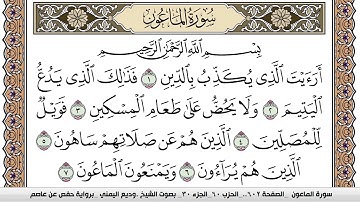 سُورَةُ الْمَاعُونِ
بِسْمِ اللَّهِ الرَّحْمَٰنِ الرَّحِيمِ
أَرَءَيْتَ الَّذِي يُكَذِّبُ بِالدِّينِ ١ فَذَٰلِكَ الَّذِي يَدُعُّ
الْيَتِيمَ ٢ وَلَا يَحُضُّ عَلَىٰ طَعَامِ الْمِسْكِينِ ٣ فَوَيْلٌ
لِّلْمُصَلِّينَ ٤ الَّذِينَ هُمْ عَن صَلَاتِهِمْ سَاهُونَ ٥
الَّذِينَ هُمْ يُرَآءُونَ ٦ وَيَمْنَعُونَ الْمَاعُونَ ٧
سورة الماعون _الصفحة ٦٠٢_ الحزب ٦٠_الجزء ٣٠_ بصوت الشيخ .وديع اليمني _برواية حفص عن عاصم